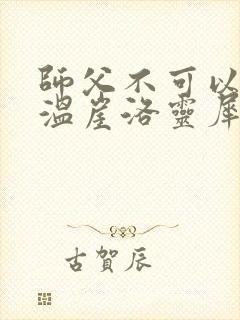 師父不可以
溫崖洛靈犀
古賀辰